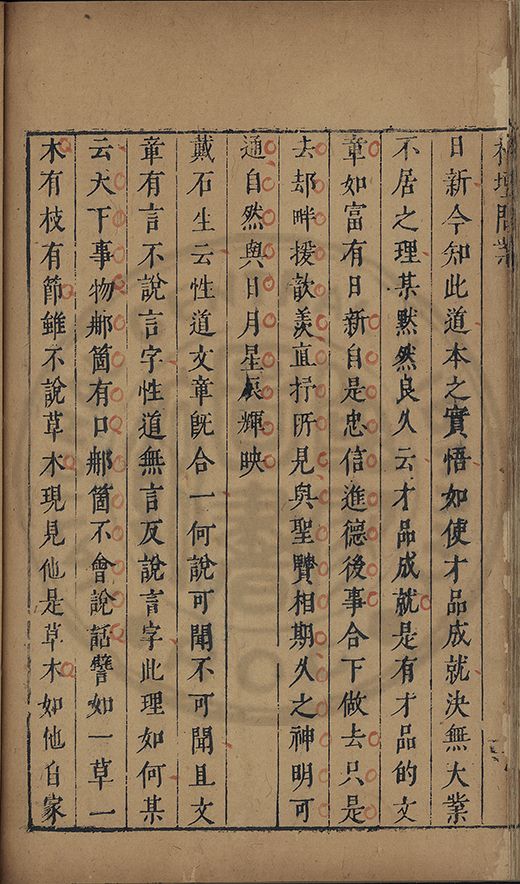 日新今知此道本之實悟如使才品成就決無大業
不居之理某黙然良久云才品成就是有才品的文
章如富有日新自是忠信進德後事合下做去只是
去却畔援歆羡直抒所見與聖賢相期久之神明可
通自然與日月星辰輝映
戴石生云性道文章旣合一何說可聞不可聞且文
章有言不說言字性道無言反說言字此理如何某
云天下事物那箇有口那箇不會說話譬如一草一
木有枝有節雖不說草木現見他是草木如他自家